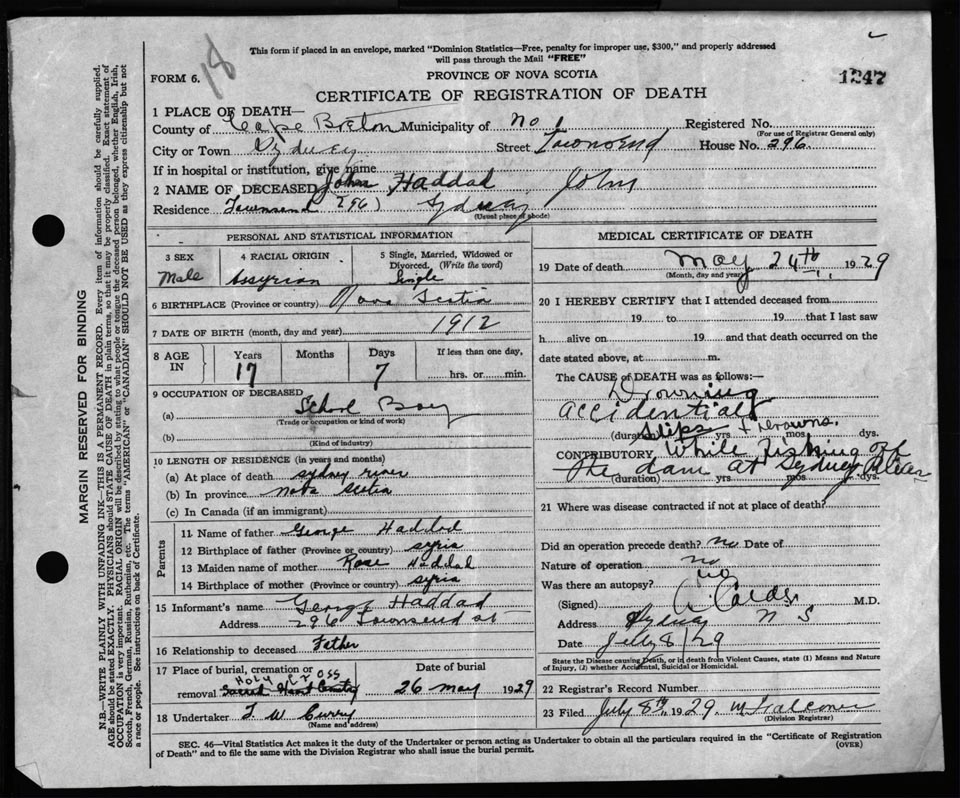 18
This form if placed in an envelope, marked "Dominion Statistics—Free, penalty for improper use, $300," and properly addressed
will pass through the Mail "FREE"
FORM 6.
PROVINCE OF NOVA SCOTIA
1247
CERTIFICATE OF REGISTRATION OF DEATH
1 PLACE OF DEATH—
County of Cape Breton Municipality of No 1 Registered No.
(For use of Registrar General only)
City or Town Sydney Street Townsend House No. 296
If in hospital or institution, give name
2 NAME OF DECEASED John Haddad John
Residence Townsend 296) Sydney
(Usual place of abode)
PERSONAL AND STATISTICAL INFORMATION
3 SEX
Male
4 RACIAL ORIGIN
Assyrian
5 Single, Married, Widowed or
Divorced, (Write the word)
Single
6 BIRTHPLACE (Province or country) Nova Scotia
7 DATE OF BIRTH (month, day and year) 1912
8 AGE
IN
Years
17
Months
Days
7
If less than one day,
hrs. or min.
9 OCCUPATION OF DECEASED
(a) School Boy
(Trade or occupation or kind of work)
(b)
(Kind of industry)
10 LENGTH OF RESIDENCE (in years and months)
(a) At place of death sydney river
(b) In province nova scotia
(c) In Canada (if an immigrant)
Parents
11 Name of father George Haddad
12 Birthplace of father (Province or country) syria
13 Maiden name of mother Rose Haddad
14 Birthplace of mother (Province or country) syria
15 Informant's name George Haddad
Address 296 Townsend st
16 Relationship to deceased Father
17 Place of burial, cremation or
removal HOLY CROSS
Date of burial
26 may 1929
18 Undertaker T W Curry
(Name and address)
MEDICAL CERTIFICATE OF DEATH
19 Date of death May 24th 1929
(Month, day and year)
20 I HEREBY CERTIFY that I attended deceased from
19 to 19 that I last saw
h alive on 19 and that death occurred on the
date stated above, at m.
The CAUSE OF DEATH was as follows:—
Drowning
accidential
Slips & drowns.
(duration) yrs mos. dys.
CONTRIBUTORY While fishing off
the dam at Sydney River
(duration) yrs mos dys.
21 Where was disease contracted if not at place of death?
Did an operation precede death? no Date of
Nature of operation no
Was there an autopsy? no
(Signed) M.D.
Address Sydney N S
Date July 8/29
State the Disease causing Death, or in death from Violent Causes, state (1) Means and Nature
of Injury, (2) whether Accidental, Suicidal or Homicidal.
22 Registrar's Record Number
23 Filed July 8th 1929 M Falconer
(Division Registrar)
SEC. 46—Vital Statistics Act makes it the duty of the Undertaker or person acting as Undertaker to obtain all the particulars required in the "Certificate of Registration
of Death" and to file the same with the Division Registrar who shall issue the burial permit.
(OVER)
MARGIN RESERVED FOR BINDING
N.B.—WRITE PLAINLY WITH UNFADING INK—THIS IS A PERMANENT RECORD. Every item of information should be carefully supplied.
AGE should be stated EXACTLY. PHYSICIANS should STATE CAUSE OF DEATH in plain terms, so that it may be properly classified. Exact statement of
OCCUPATION is very important. RACIAL ORIGIN will be described by stating to what people or tongue the deceased person belonged, whether English, Irish,
Scotch, French, German, Russian, Ruthenian, etc. The terms "AMERICAN" or "CANADIAN" SHOULD NOT BE USED as they express citizenship but not
a race or people. See instructions on back of Certificate.